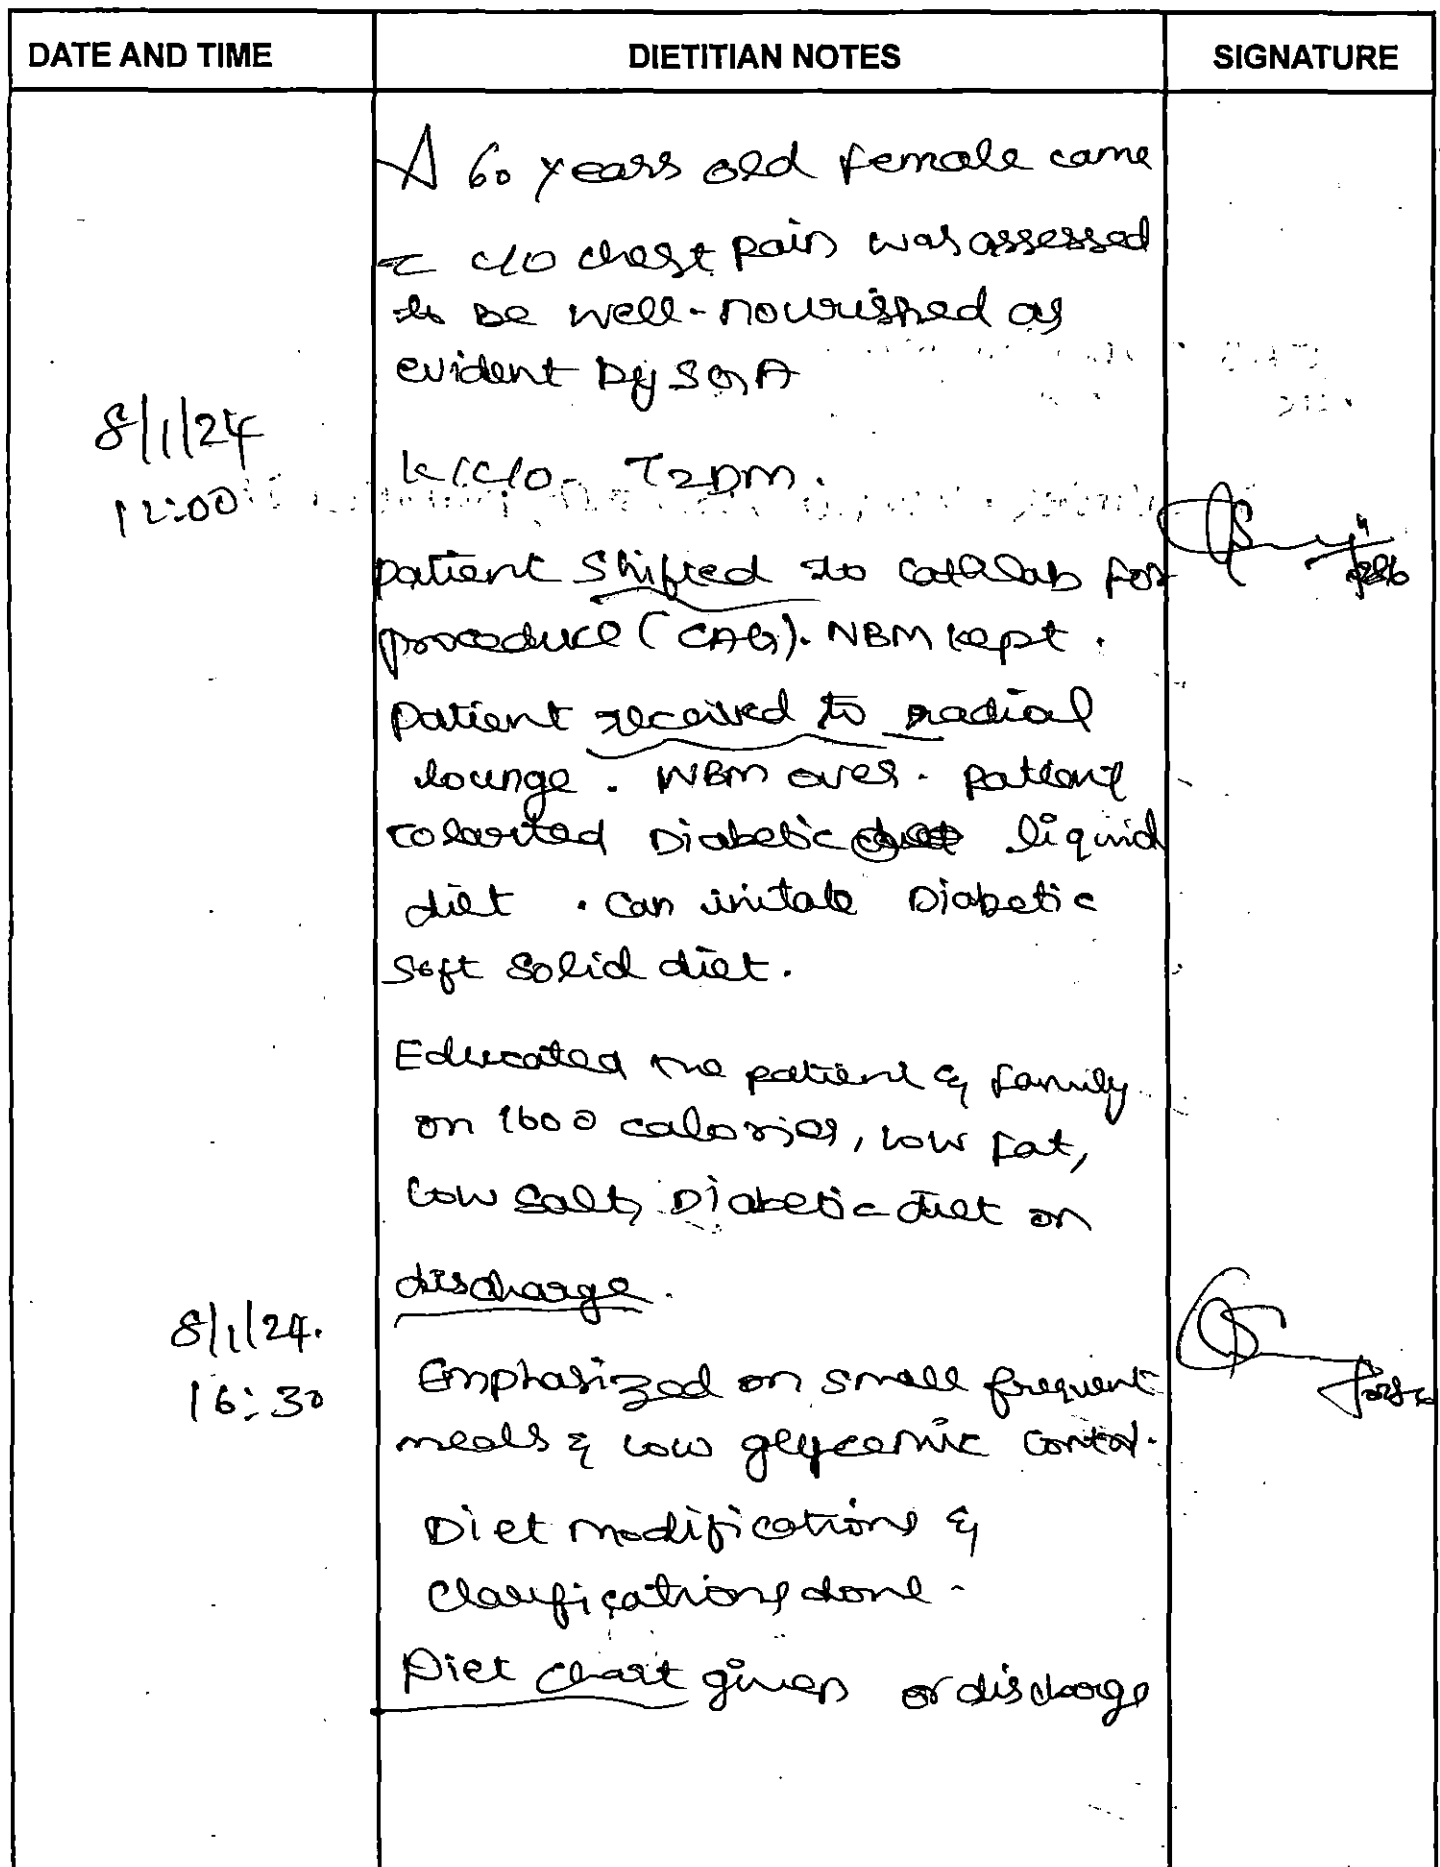 DATE AND TIME DIETITIAN NOTES SIGNATURE
A 60 years old female came
c c/o chest pain was assessed
to be well-nourished as
evident by SGA
8/1/24
12:00
K/C/O - T2DM.
patient shifted to cathlab for
procedure (CAG). NBM kept.
Patient received to radial
lounge. NBM over. patient
Diabetic liquid
diet. can initate Diabetic
soft solid diet.
Educated the patient & family
on 1600 calories, low fat,
low salt, Diabetic diet on
discharge.
8/1/24.
16:30
Emphasized on small frequent
meals & low glycemic control.
Diet modifications &
Clarifications done.
Diet chart given on discharge